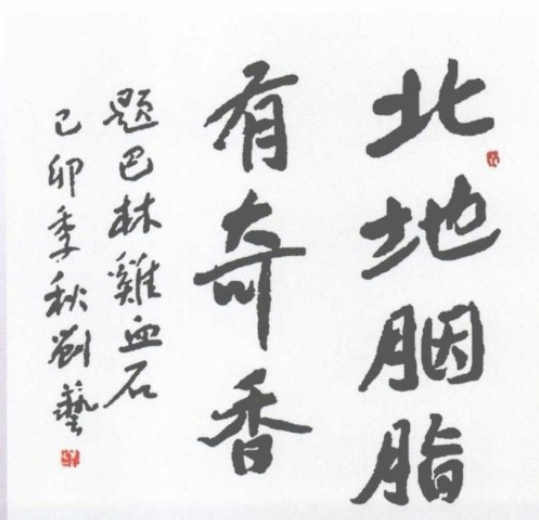 北地胭脂
有奇香
题巴林雞血石
己卯季秋劉藝